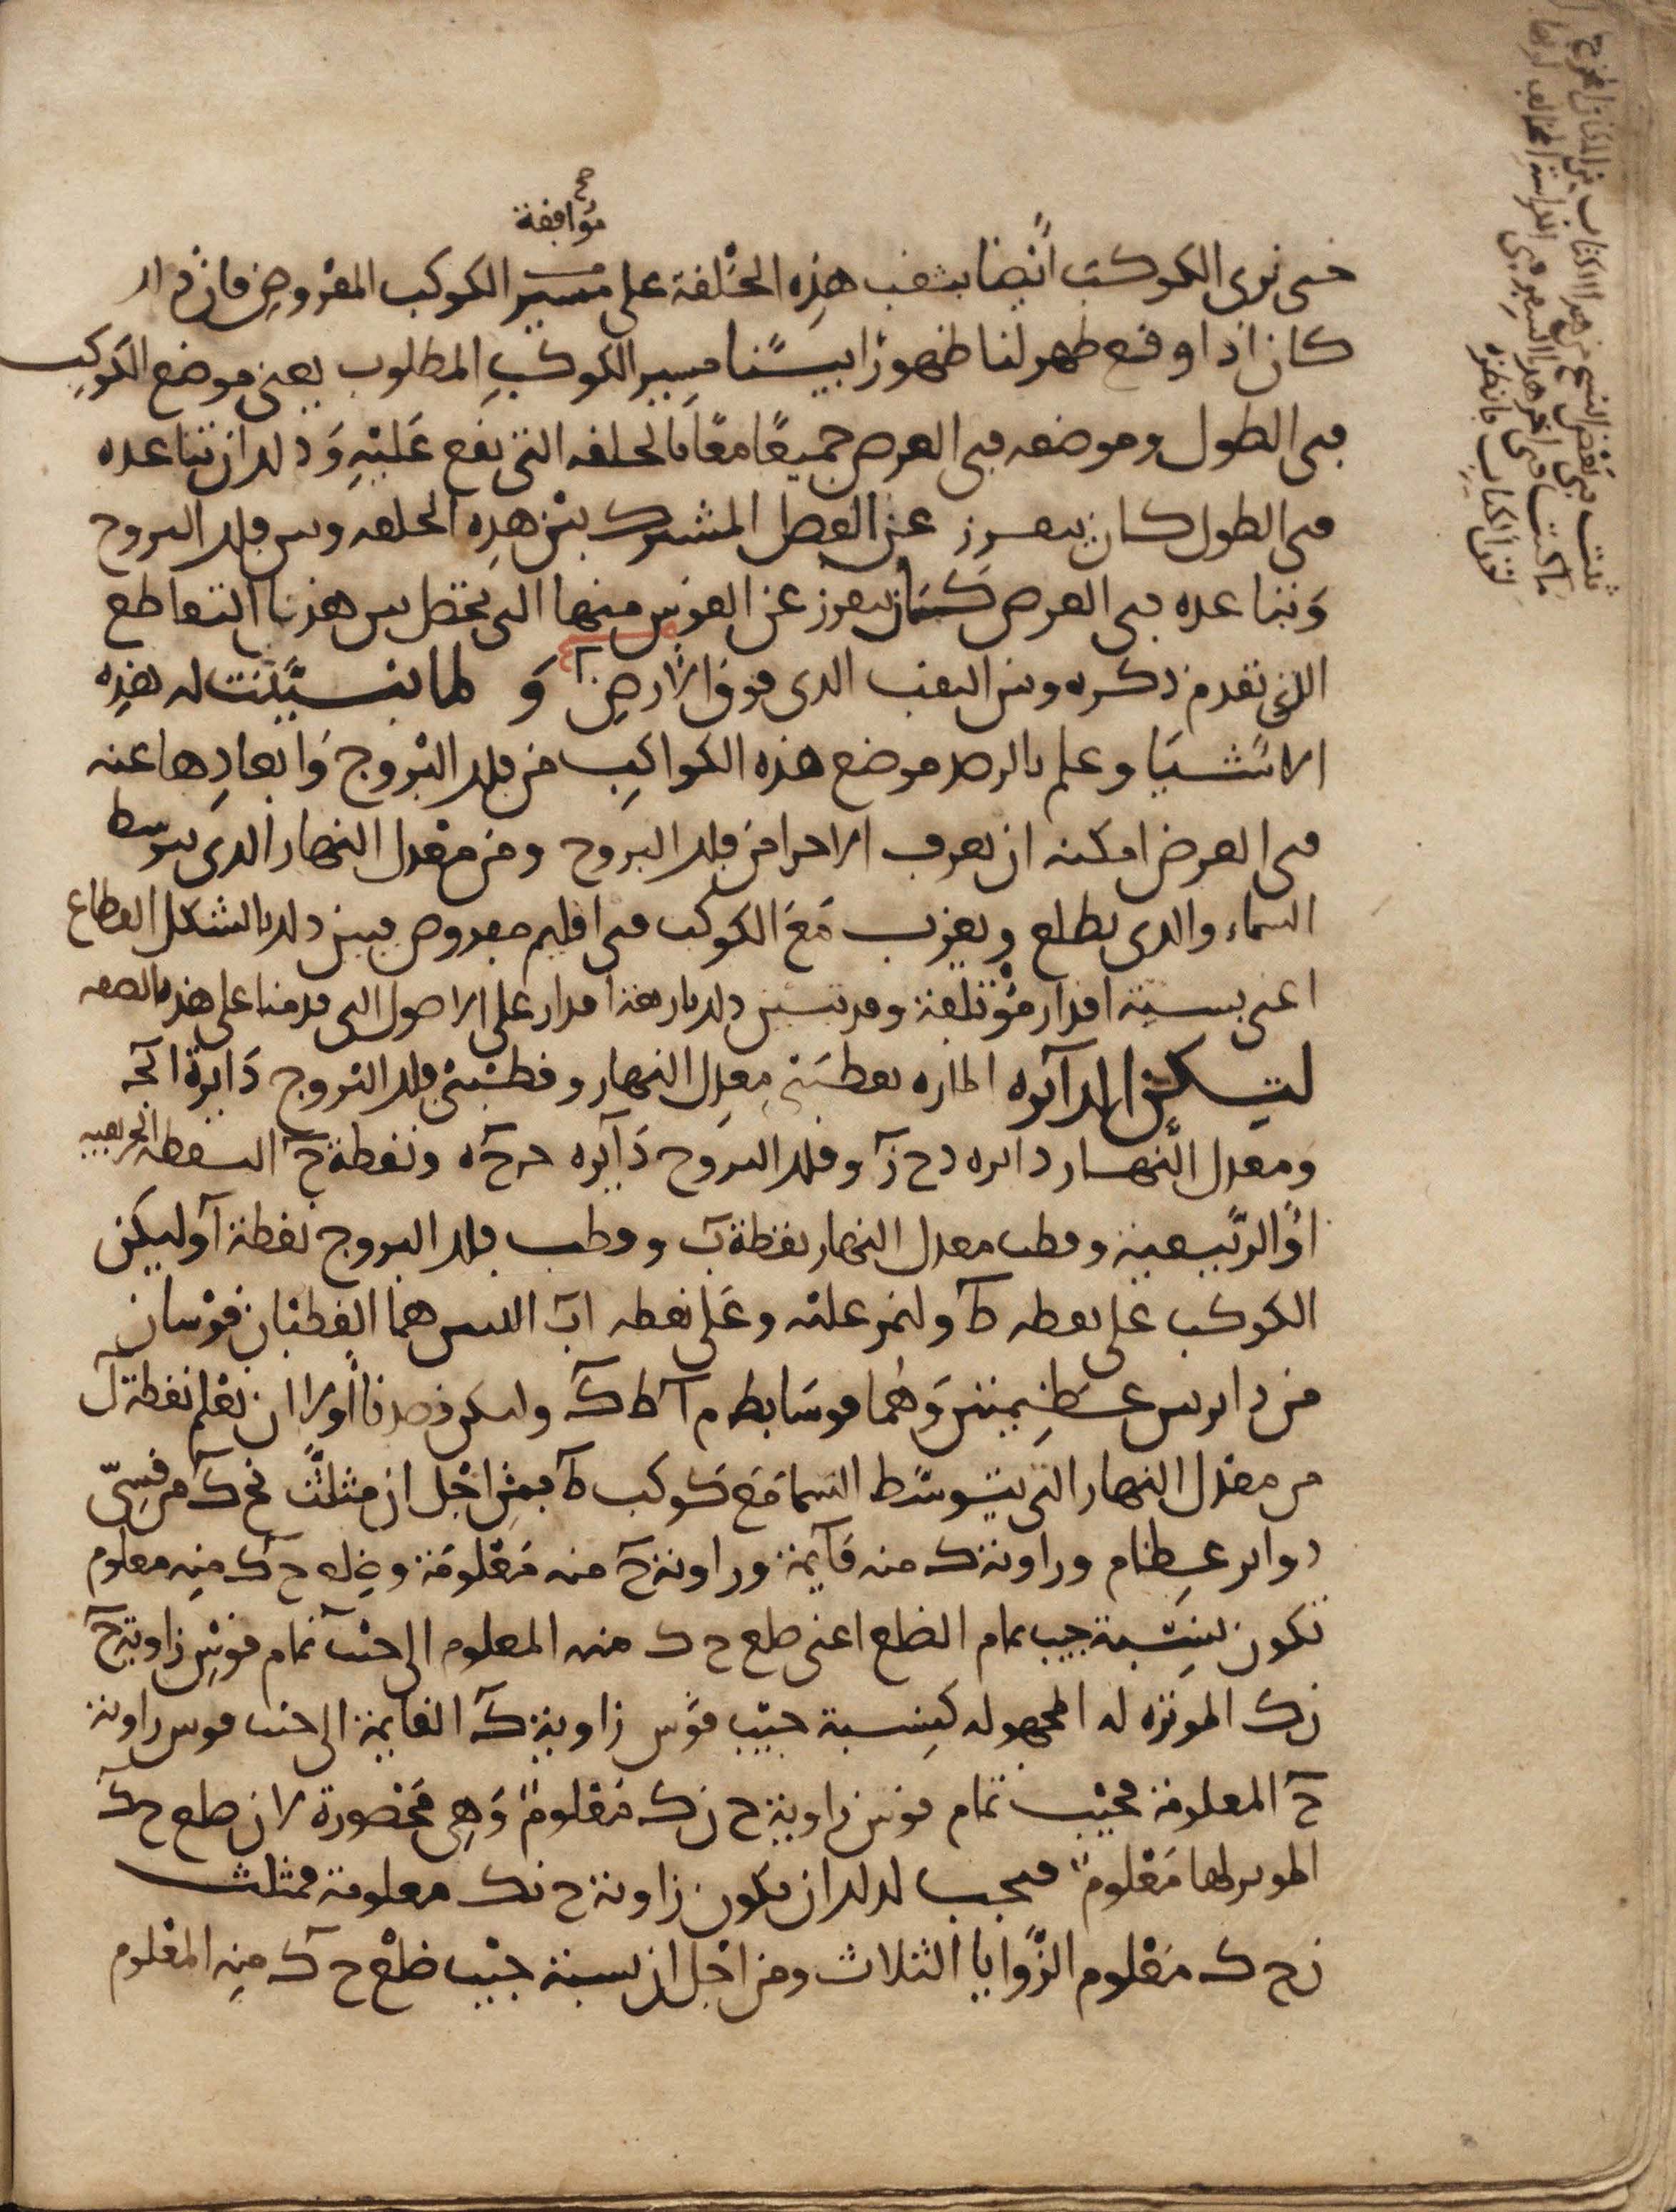 مؤافقة صح
حتى نرى الكوكب أيضا بثقب هذه الحلقة على مسير الكوكب المفروض فان ذلك
كان اذا وقع ظهر لنا ظهورا بيّنا مسير الكوكب المطلوب يعني موضع الكوكب
في الطول وموضعه في العرض جميعًا معًا فالحلقه التي نقع عليه وذلك ان تباعده
في الطول كان يبعرز عن الفصل المشترك بين هذه الحلقه وبين فلك البروج
وتباعده في العرض كان يبعرز عن القوس منها التي تحصل بين هذا التقاطع
الذي تقدم ذكره وبين الثقب الذي فوق الأرض و لما تبيّنت له هذه
الاشيا وعلم بالرصد موضع هذه الكواكب من فلك البروج وابعادها عنه
في العرض امكنه ان يعرف الاجزا من فلك البروج ومن معدل النهار الذي يتوسط
السماء والذي يطلع ويغرب مع الكوكب في اقليم مفروض فبين ذلك بالشكل القطاع
اعني بستة اقدار مؤتلفة وقد تبين ذلك باربعة اقدار على الاصول التي قدمنا على هذه الصفه
لتكن الدآئره المارّه بقطبي معدل النهار وقطبي فلك البروج دايرة ا بجه
ومعدل النهار دايره د ح ز وفلك البروج دآئره ح ه ونقطة ح النقطه الخريفيه
أو الربيعية وقطب معدل النهار نقطة ب وقطب فلك البروج نقطة آ وليكن
الكوكب على نقطه ط ولنمر عليه وعلى نقطه ا ب اللتين هما القطبان قوسان
من دايرتين عظيمتين وهما قوسا ب ط م آ ط ك وليكن قصدنا أولا ان نعلم نقطة ل
من معدل النهار التي يتوسط السما مع كوكب ط فمن اجل ان مثلث نح ك من قسيّ
دواير عظام وزاوية ك منه قآيمة وزاوية ح منه معلومة وضلع ح ك منه معلوم
تكون نسبة جيب تمام الضلع اعني ضلع ح ك منه المعلوم الى جيب تمام قوس زاوية ح
ن ك الموترة له المجهوله كنسبة جيب قوس زاوية ك القايمة الى جيب قوس زاوية
ح المعلومة فجيب تمام قوس زاوية ح ن ك معلوم وهي محصورة لان ضلع ح ك
الموتر لها معلوم فيجب لذلك ان تكون زاوية ح ن ك معلومة فمثلث
ن ح ك معلوم الزوايا الثلاث ومن اجل ان نسبة جيب ضلع ح ك منه المعلوم